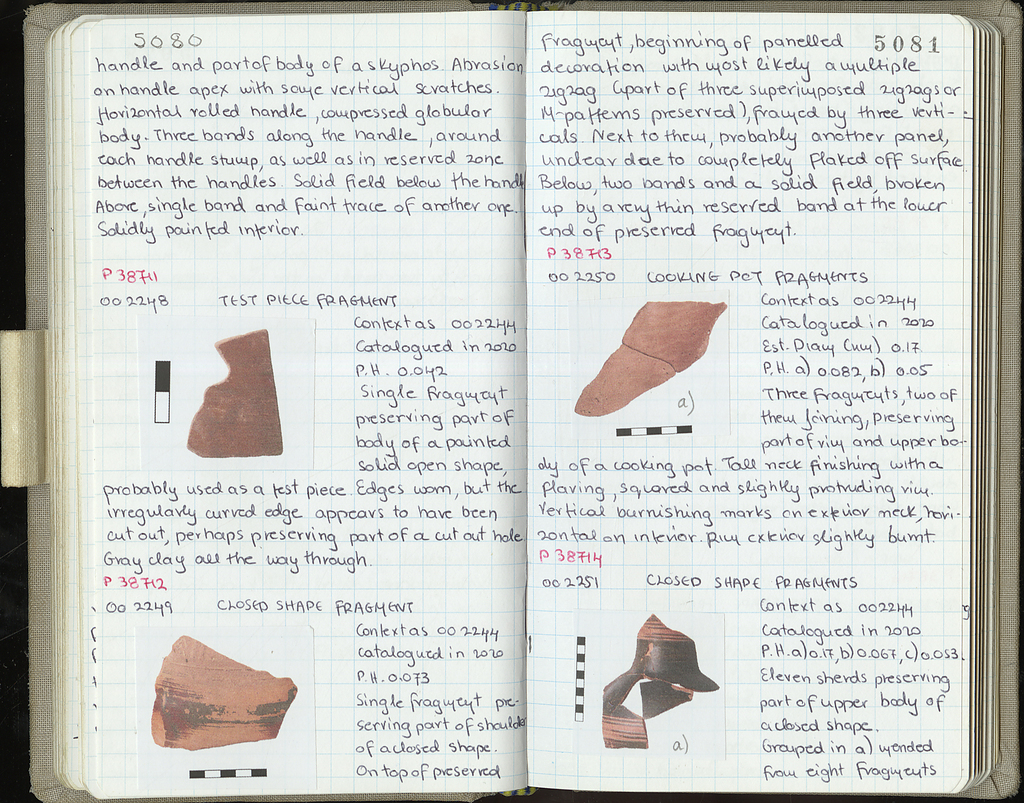 5080
handle and part of body of a skyphos. Abrasion
on handle apex with some vertical scratches.
Horizontal rolled handle, compressed globular
body. Three bands along the handle, around
each handle stump, as well as in reserved zone
between the handles. Solid field below the handle
Above, single band and faint trace of another one.
Solidly painted interior.
P 38711
OO 2248 TEST PIECE FRAGMENT
Context as OO 2244
Catalogued in 2020
P.H. 0.042
Single fragment
preserving part of
body of a painted
solid open shape,
probably used as a test piece. Edges worn, but the
irregularly curved edge appears to have been
cut out, perhaps preserving part of a cut out hole
Gray clay all the way through.
P 38712
OO 2249 CLOSED SHAPE FRAGMENT
Context as OO 2244
Catalogued in 2020
P.H. 0.073
Single fragment pre-
serving part of shoulder
of a closed shape.
On top of preserved
5081
fragment, beginning of panelled
decoration with most likely a multiple
zigzag (part of three superimposed zigzags or
M-patterns preserved), framed by three verti-
cals. Next to them, probably another panel,
unclear due to completely flaked off surface.
Below, two bands and a solid field, broken
up by a very thin reserved band at the lower
end of preserved fragment.
P 38713
OO 2250 COOKING POT FRAGMENTS
Context as OO2244
Catalogued in 2020
Est. Diam (rim) 0.17
P.H. a) 0.082, b) 0.05
Three fragments, two of
them joining, preserving
part of rim and upper bo-
dy of a cooking pot. Tall neck finishing with a
flaring, squared and slightly protruding rim.
Vertical burnishing marks on exterior neck, hori-
zontal on interior. Rim exterior slightly burnt.
a)
P 38714
OO 2251 CLOSED SHAPE FRAGMENTS
Context as OO2244
Catalogued in 2020
P.H. a) 0.17, b) 0.067, c) 0.053.
Eleven sherds preserving
part of upper body of
a closed shape.
Grouped in a) mended
from eight fragments
a)